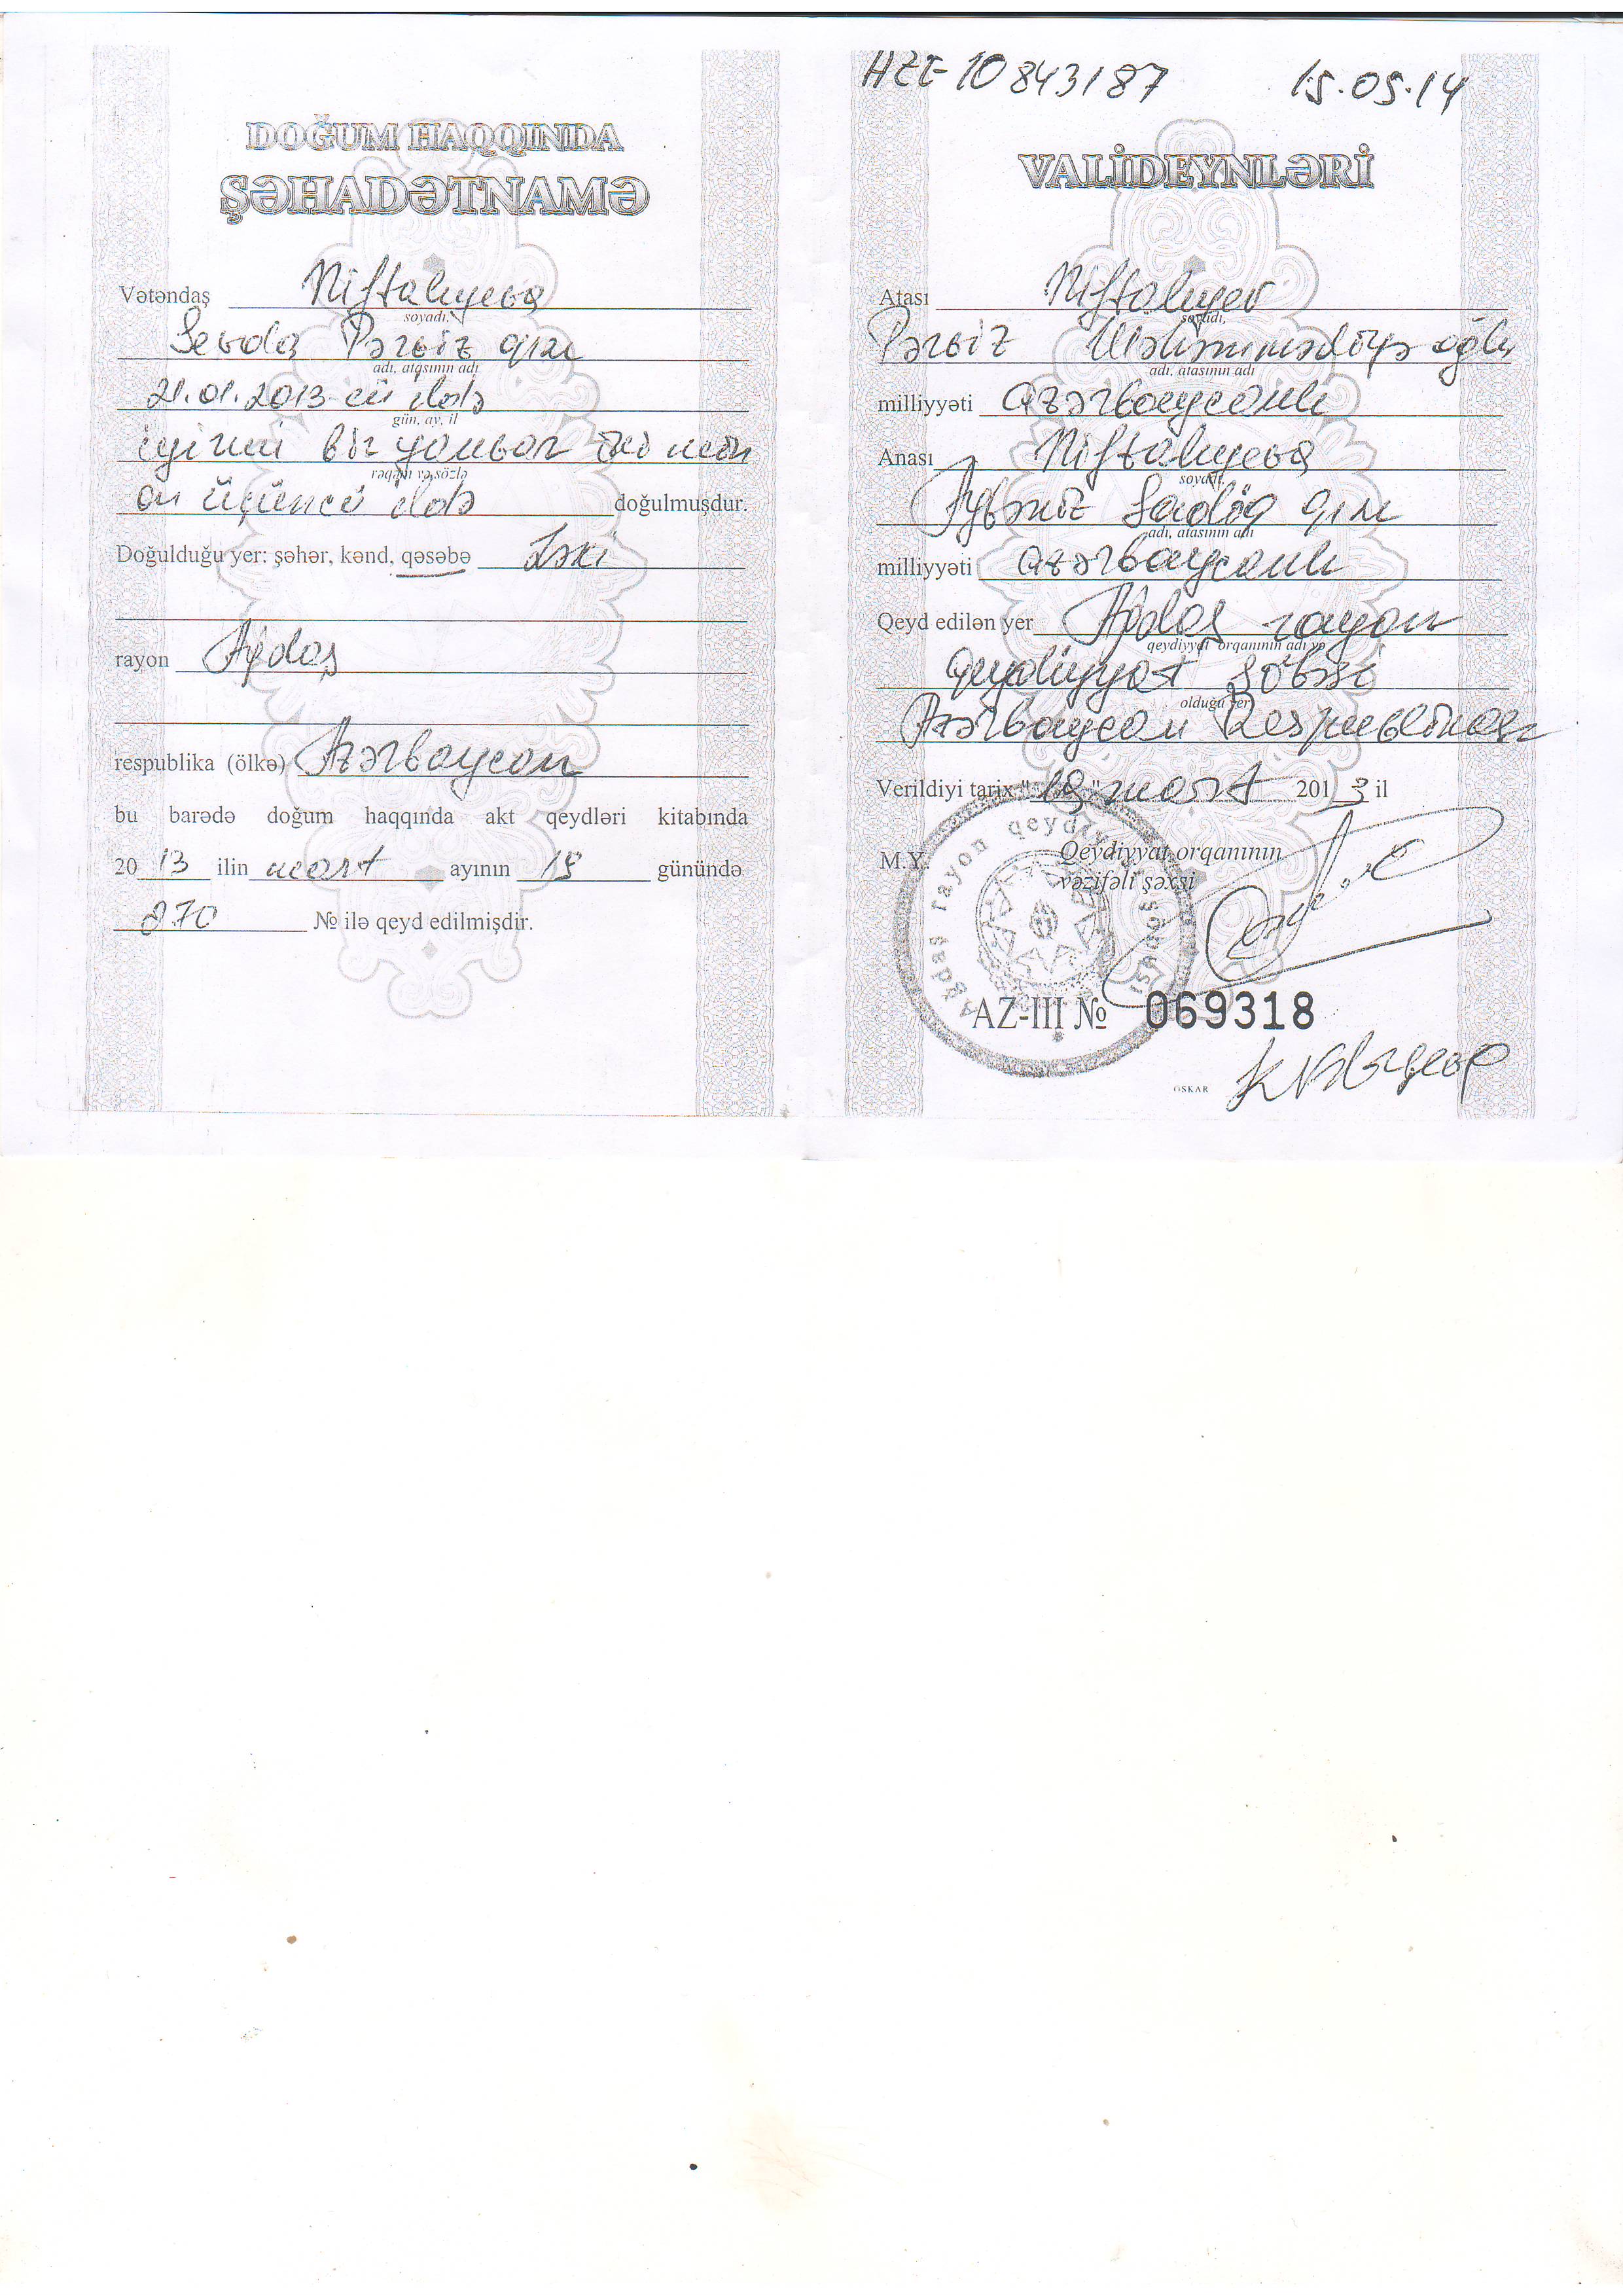 DOĞUM HAQQINDA
ŞƏHADƏTNAMƏ
Vətəndaş Niftalıyeva
soyadı,
Sevda Pərviz qızı
adı, atasının adı
21.01.2013-cü ildə
gün, ay, il
iyirmi bir yanvar iki min
rəqəm və sözlə
on üçüncü ildə doğulmuşdur.
Doğulduğu yer: şəhər, kənd, qəsəbə Ləki
rayon Ağdaş
respublika (ölkə) Azərbaycan
bu barədə doğum haqqında akt qeydləri kitabında
20 13 ilin mart ayının 19 günündə
270 № ilə qeyd edilmişdir.
AZE-10843187 15.05.14
VALİDEYNLƏRİ
Atası Niftalıyev
soyadı,
Pərviz oğlu
adı, atasının adı
milliyyəti azərbaycanlı
Anası Niftalıyeva
soyadı,
Aybəniz Sadıq qızı
adı, atasının adı
milliyyəti azərbaycanlı
Qeyd edilən yer Ağdaş rayon
qeydiyyat orqanının adı və
Qeydiyyat şöbəsi
olduğu yer
Azərbaycan Respublikası
Verildiyi tarix "19" mart 2013 il
M.Y. Qeydiyyat orqanının
vəzifəli şəxsi
Ağdaş rayon qeydiyyat şöbəsi
AZ-III № 069318
OSKAR